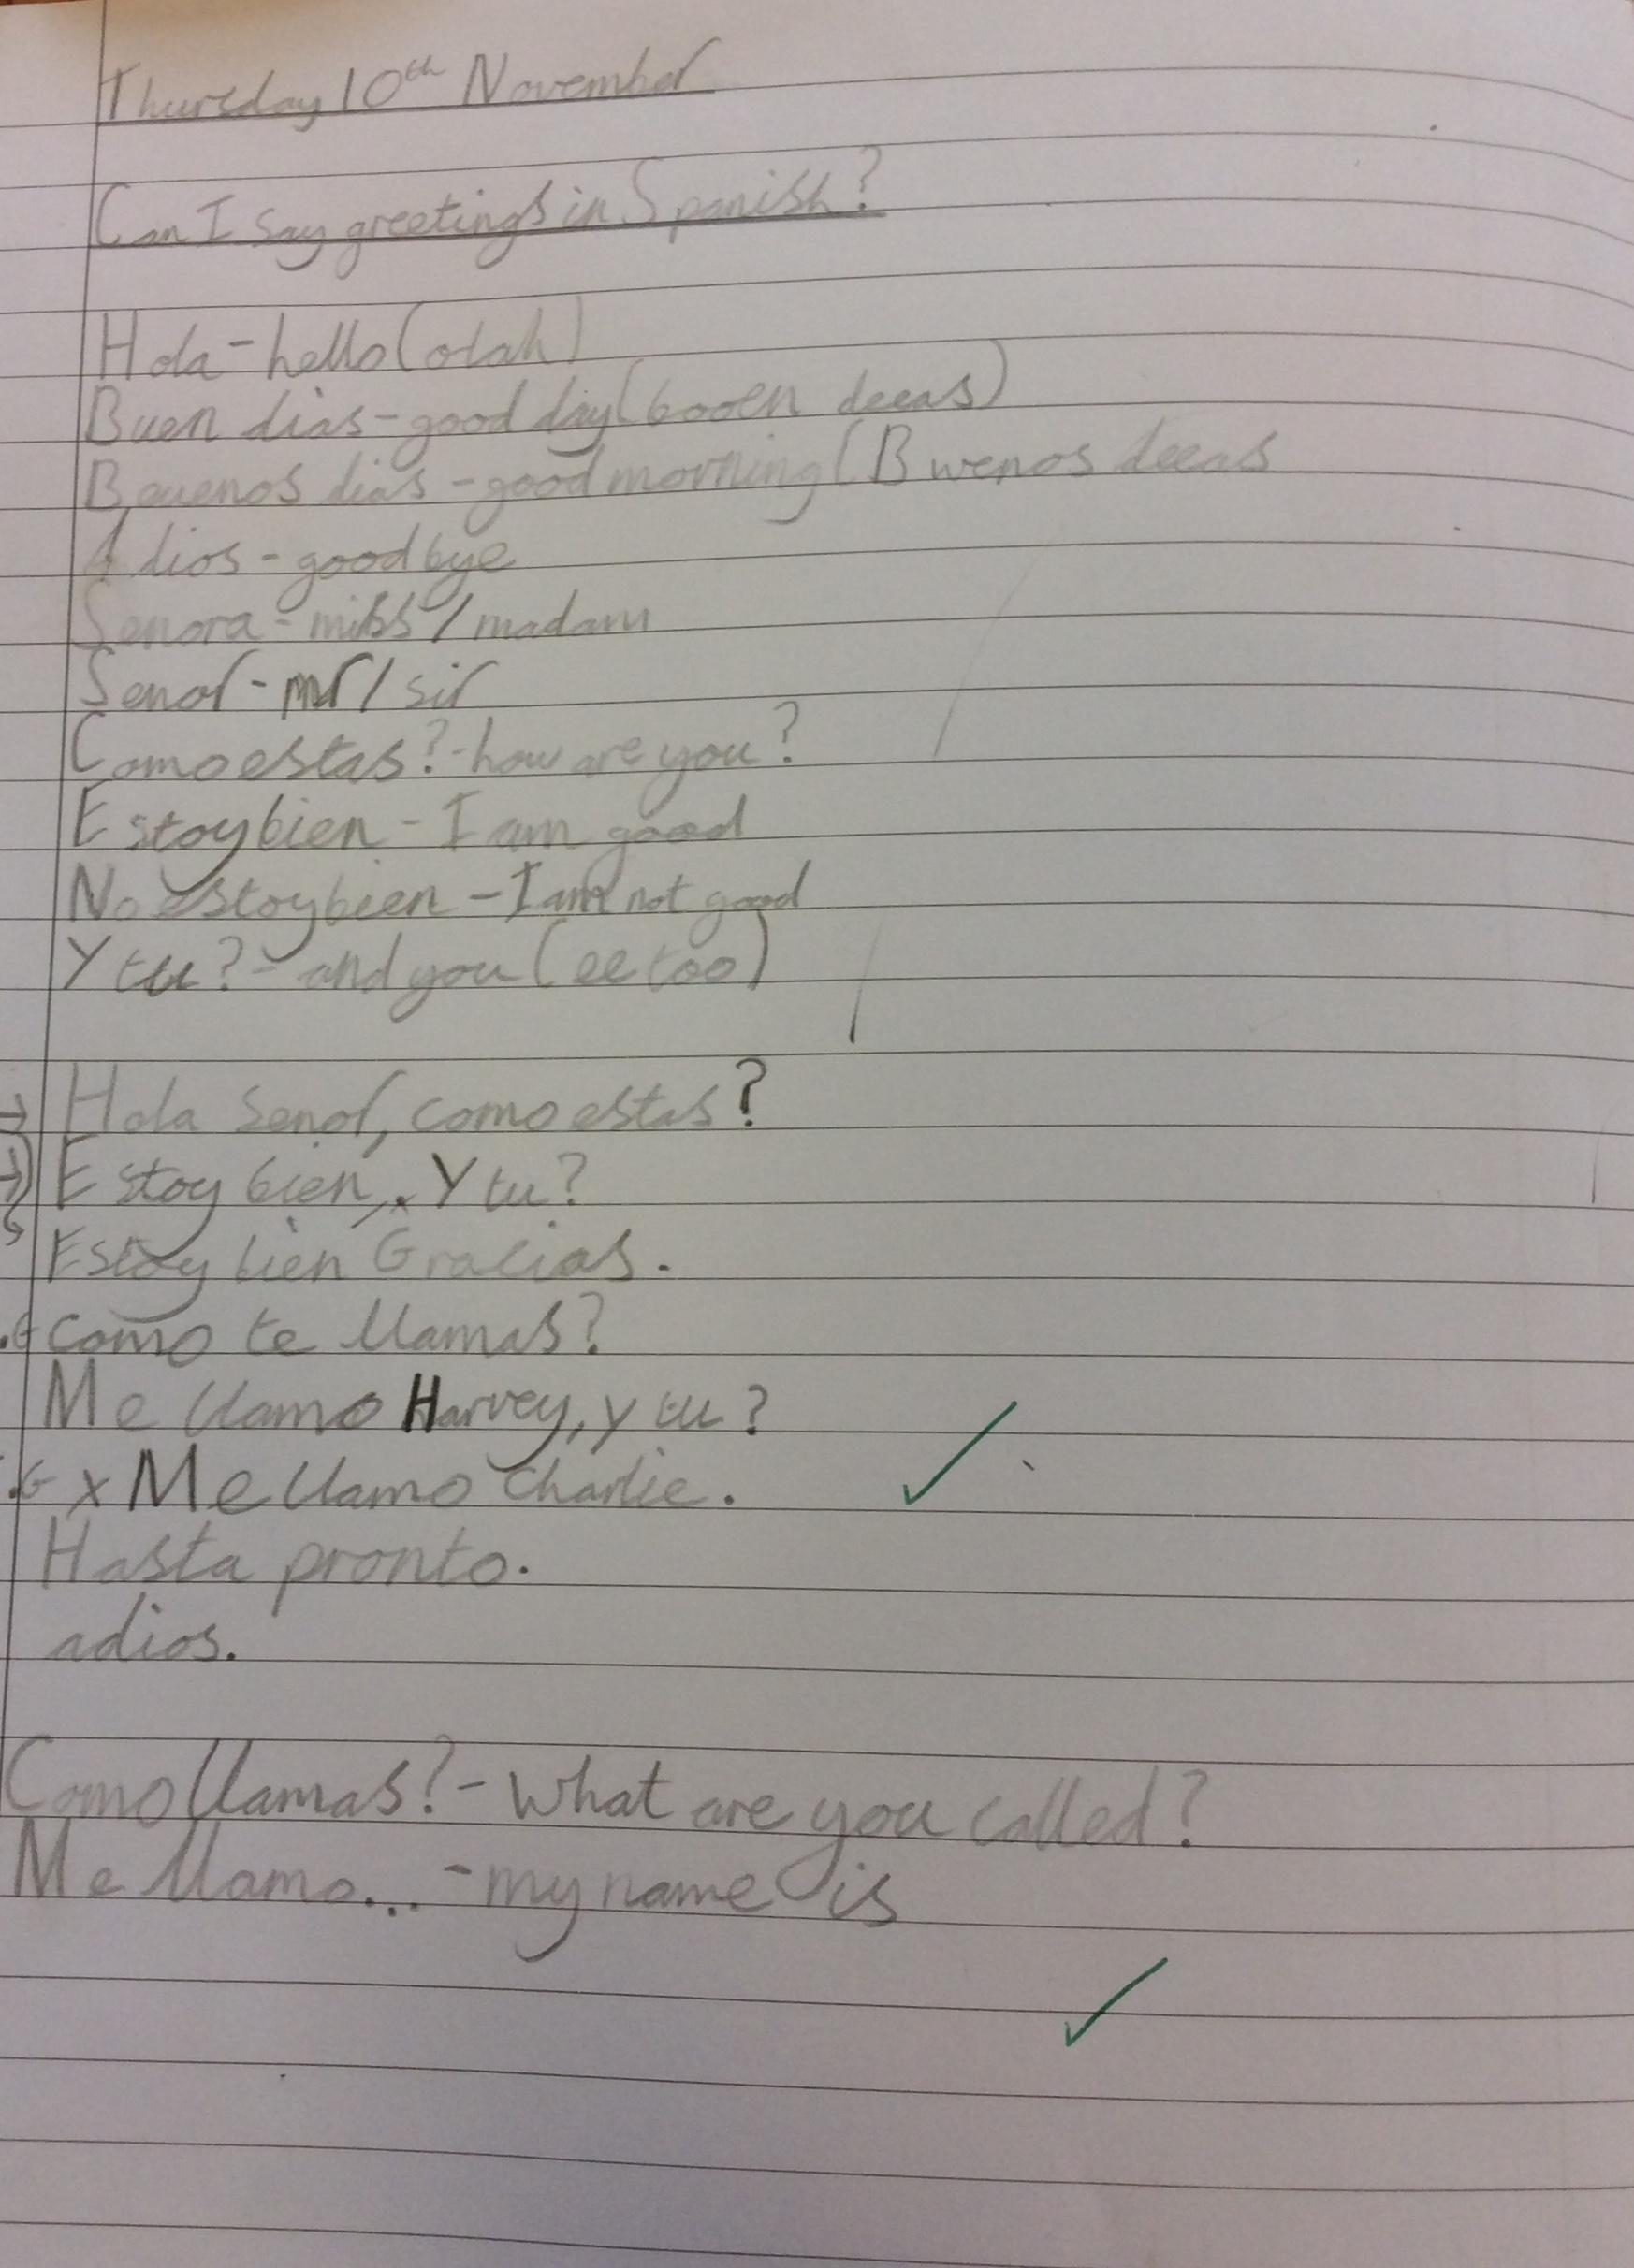 Thursday 10th November
Can I say greetings in Spanish?
Hola - hello (olah)
Buen dias - good day (booen deeas)
Bouenos dias - good morning (Bwenos deeas
Adios - goodbye
Senora - miss / madam
Senor - mr / sir
Como estas? - how are you?
Estoy bien - I am good
No estoy bien - I am not good
Y tu? - and you (ee too)
→ Hola Senor, como estas?
→ Estoy bien, Y tu?
Estoy bien Gracias.
como te llamas?
Me llamo Harvey, y tu?
x Me llamo Charlie.
Hasta pronto.
adios.
Como llamas? - What are you called?
Me llamo... - my name is